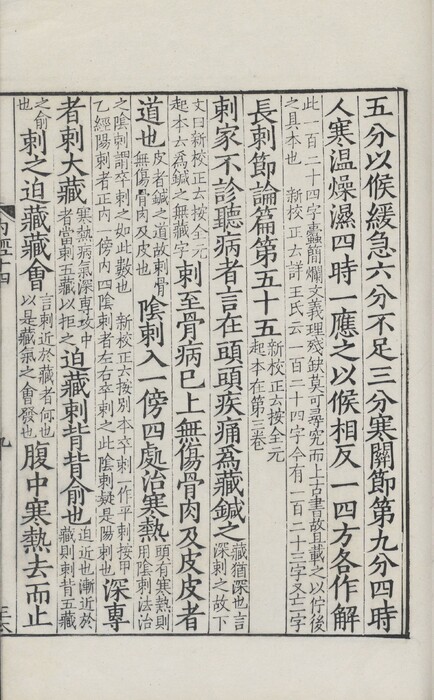 五分以候緩急六分不足三分寒關節第九分四時
人寒温燥濕四時一應之以候相反一四方各作解
此一百二十四字蠹簡爛文義理殘缺莫可尋究而上古書故且載之以佇後
之具本也　新校正云詳王氏云一百二十四字今有一百二十三字又亡一字
長刺節論篇第五十五 新校正云按全元起本在第三卷
刺家不診聽病者言在頭頭疾痛爲藏鍼之 藏猶深也言深刺之故下
文曰新校正云按全元起本云爲鍼之無藏字 刺至骨病已上無傷骨肉及皮皮者
道也 皮者鍼之道故刺骨無傷骨肉及皮也 陰刺入一傍四處治寒熱 頭有寒熱則用陰刺法治
之陰刺謂卒刺之如此數也　新校正云按别本卒刺一作平刺按甲乙經陽刺者正内一傍内四陰刺者左右卒刺之此陰刺疑是陽刺也 深專
者刺大藏 寒熱病氣深專攻中者當刺五藏以拒之 迫藏刺背背俞也 迫近也漸近於藏則刺背五藏
之俞也 刺之迫藏藏會 言刺近於藏者何也以是藏氣之會發也 腹中寒熱去而止
内經十四 九